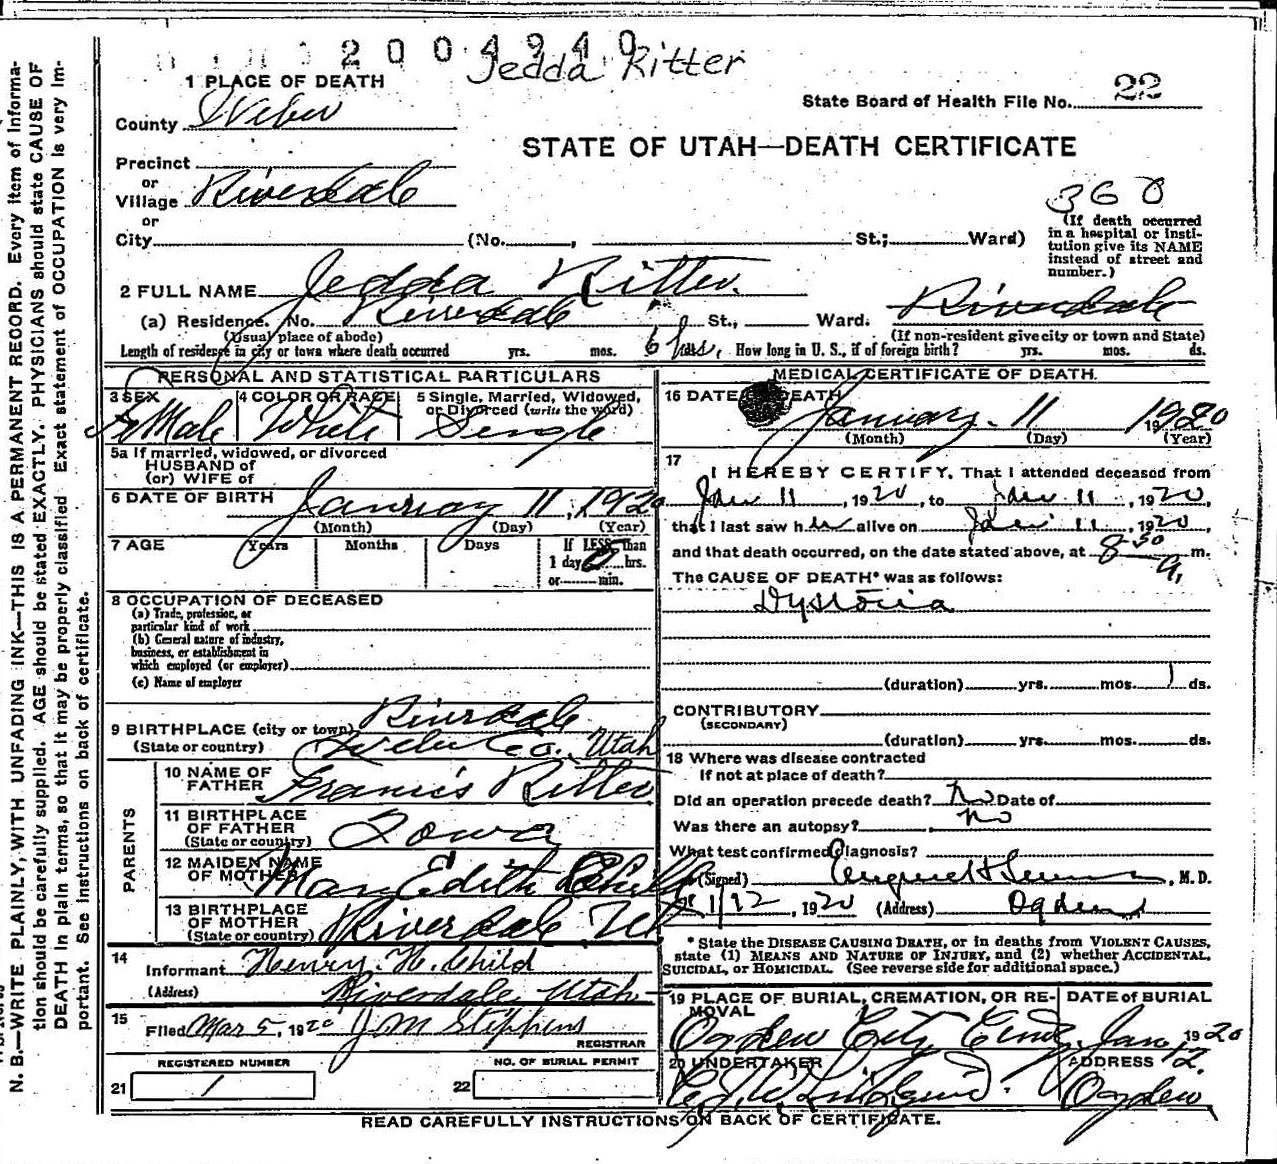 2004940
Jedda Ritter
1 PLACE OF DEATH
State Board of Health File No. 22
County Weber
STATE OF UTAH—DEATH CERTIFICATE
Precinct
or
Village Riverdale
or
360
City (No. , St.; Ward)
(If death occurred
in a hospital or insti-
tution give its NAME
instead of street and
number.)
2 FULL NAME Jedda Ritter.
(a) Residence. No. Riverdale St., Ward. Riverdale
(Usual place of abode) (If non-resident give city or town and State)
Length of residence in city or town where death occurred yrs. mos. 6 hrs. How long in U. S., if of foreign birth? yrs. mos. ds.
PERSONAL AND STATISTICAL PARTICULARS
3 SEX FeMale
4 COLOR OR RACE White
5 Single, Married, Widowed,
or Divorced (write the word)
Single
5a If married, widowed, or divorced
HUSBAND of
(or) WIFE of
6 DATE OF BIRTH January 11, 1920
(Month) (Day) (Year)
7 AGE Years Months Days If LESS than
1 day hrs.
or min.
8 OCCUPATION OF DECEASED
(a) Trade, profession, or
particular kind of work
(b) General nature of industry,
business, or establishment in
which employed (or employer)
(c) Name of employer
9 BIRTHPLACE (city or town) Riverdale
(State or country) Weber Co. Utah
PARENTS
10 NAME OF
FATHER Francis Ritter
11 BIRTHPLACE
OF FATHER
(State or country) Iowa
12 MAIDEN NAME
OF MOTHER Mary Edith Child
13 BIRTHPLACE
OF MOTHER
(State or country) Riverdale Ut
14
Informant Henry H. Child
(Address) Riverdale Utah
15
Filed Mar 5, 1920 J M Stephens
REGISTRAR
REGISTERED NUMBER
NO. OF BURIAL PERMIT
21 1
22
MEDICAL CERTIFICATE OF DEATH.
16 DATE OF DEATH January 11 1920
(Month) (Day) (Year)
17
I HEREBY CERTIFY, That I attended deceased from
Jan 11, 1920, to Jan 11, 1920,
that I last saw her alive on Jan 11, 1920,
and that death occurred, on the date stated above, at 8 30 a. m.
The CAUSE OF DEATH* was as follows:
Dystocia
(duration) yrs. mos. 1 ds.
CONTRIBUTORY
(SECONDARY)
(duration) yrs. mos. ds.
18 Where was disease contracted
If not at place of death?
Did an operation precede death? No Date of
Was there an autopsy? no
What test confirmed diagnosis?
(Signed) , M. D.
1/12, 1920 (Address) Ogden
* State the DISEASE CAUSING DEATH, or in deaths from VIOLENT CAUSES,
state (1) MEANS AND NATURE OF INJURY, and (2) whether ACCIDENTAL,
SUICIDAL, or HOMICIDAL. (See reverse side for additional space.)
19 PLACE OF BURIAL, CREMATION, OR RE-
MOVAL
Ogden City Cem
DATE of BURIAL
Jan 12. 1920
20 UNDERTAKER
ADDRESS
Ogden
READ CAREFULLY INSTRUCTIONS ON BACK OF CERTIFICATE.
N. B.—WRITE PLAINLY, WITH UNFADING INK—THIS IS A PERMANENT RECORD. Every item of informa-
tion should be carefully supplied. AGE should be stated EXACTLY. PHYSICIANS should state CAUSE OF
DEATH in plain terms, so that it may be properly classified. Exact statement of OCCUPATION is very im-
portant. See instructions on back of certificate.